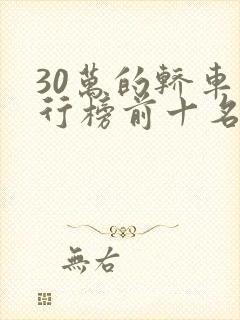 30萬的轎車
行榜前十名
無右